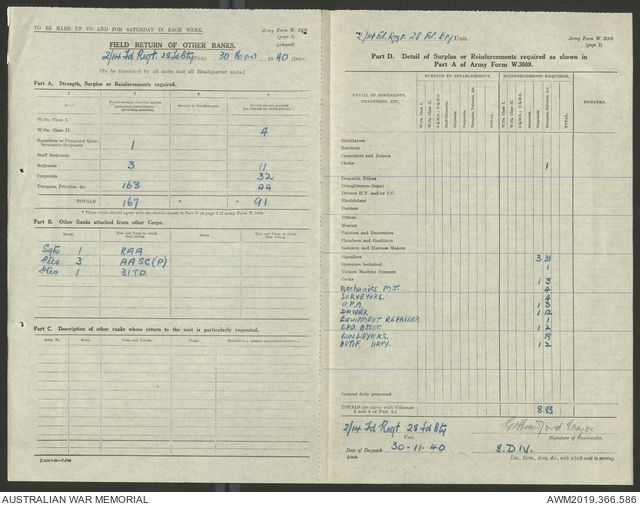 TO BE MADE UP TO AND FOR SATURDAY IN EACH WEEK.
Army Form W. 3009
(page 1)
(Adapted)
FIELD RETURN OF OTHER RANKS.
2/14 Fd Regt. 28 Fd Bty (Unit) 30 Nov 1940 (Date)
(To be furnished by all units and all Headquarter units.)
Part A. Strength, Surplus or Reinforcements required.
1 2 3 4
Rank.
W.Os. Class I.
W.Os. Class II. 4
Squadron or Company Quarter-master-Serjeants 1
Staff Serjeants
Serjeants 3 11
Corporals 32
Troopers, Privates, &c. 163 44
TOTALS 167 91
* These totals should agree with the details shown in Part D on page 2 of Army Form W. 3009.
Part B. Other Ranks attached from other Corps.
Sgts 1 RAA
Ptes 3 AASC (P)
Ptes 1 31 T.D.
Part C. Description of other ranks whose return to the unit is particularly requested.
Army No. Rank. Name and Details. Corps.
2/14 Fd. Regt. 28 Fd. Bty. Unit.
Army Form W. 3009
(page 2)
Part D. Detail of Surplus or Reinforcements required as shown in
Part A of Army Form W.3009.
SURPLUS TO ESTABLISHMENT. REINFORCEMENTS REQUIRED.
DETAIL OF SPECIALISTS, TRADESMEN, ETC.
W.Os. Class I. W.Os. Class II. Staff-Serjeants Serjeants. Corporals. Troopers, Privates, &c. TOTAL.
REMARKS.
Bricklayers
Butchers
Carpenters and Joiners
Clerks 1
Despatch Riders
Draughtsmen (topo)
Drivers H.T. and/or I.C.
Electricians
Farriers
Fitters
Masons
Painters and Decorators
Plumbers and Gasfitters
Saddlers and Harness Makers
Signallers 3 31
Storemen technical 1
Vickers Machine Gunners
Cooks 1 3
Mechanics M.T. 4
SURVEYORS. 4
O.P.A. 1 3
DRIVER 1 12
EQUIPMENT REPAIRER 1
GPO ASSR. 1 2
GUNLAYERS. 19
ARTIF. ARTY. 1 2
General duty personnel
TOTALS (to agree with Columns 3 and 4 of Part A.) 8 83
2/14 Fd Regt 28 Fd Bty
Unit.
Major
Signature of Commander.
Date of Despatch 30-11-40
8. DIV.
Bde., Divn., Area, &c., with which unit is serving.
AUSTRALIAN WAR MEMORIAL
AWM2019.366.586